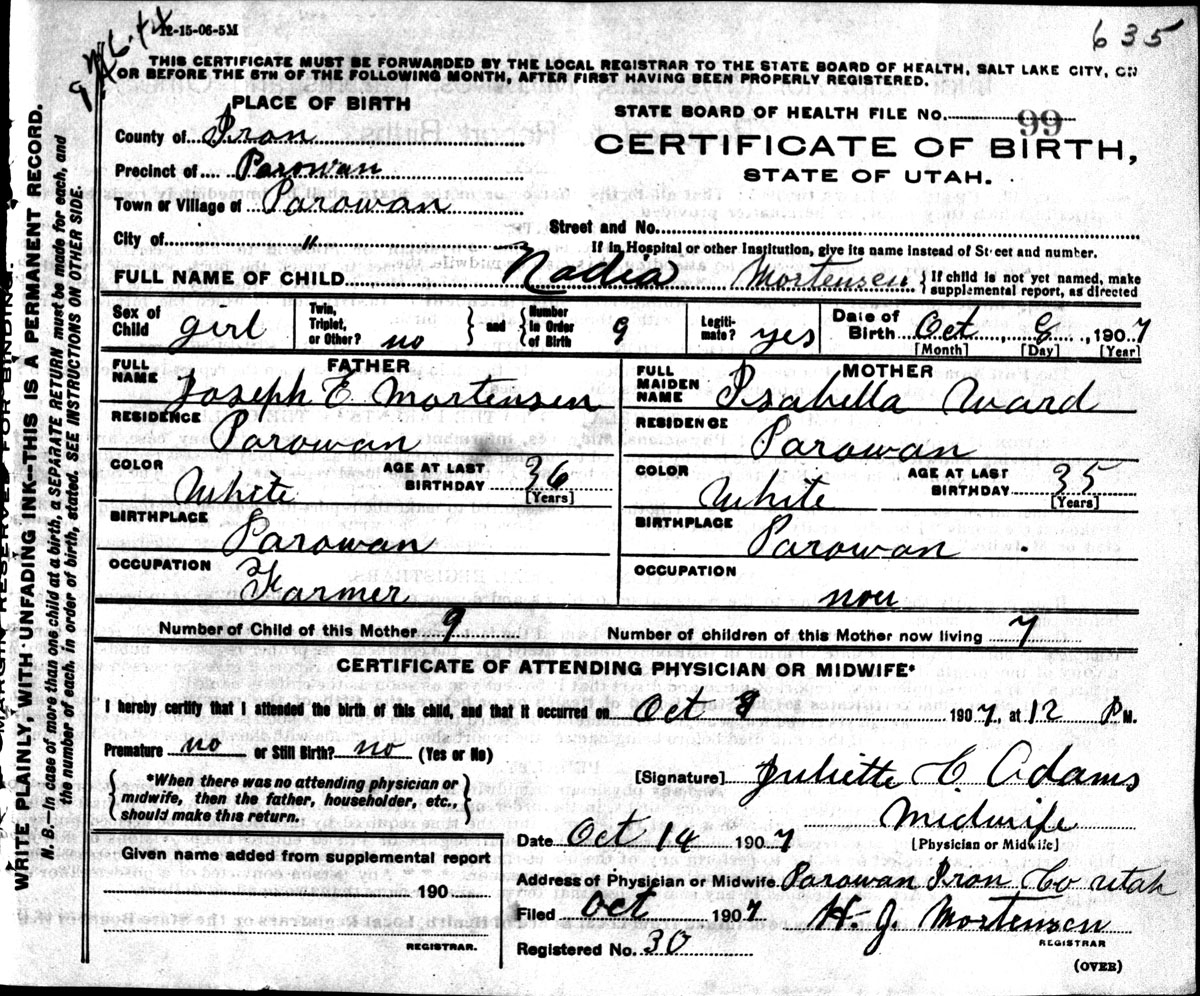 12-15-06-5M
635
THIS CERTIFICATE MUST BE FORWARDED BY THE LOCAL REGISTRAR TO THE STATE BOARD OF HEALTH, SALT LAKE CITY, ON
OR BEFORE THE 5TH OF THE FOLLOWING MONTH, AFTER FIRST HAVING BEEN PROPERLY REGISTERED.
PLACE OF BIRTH
County of Iron
Precinct of Parowan
Town or Village of Parowan
City of "
STATE BOARD OF HEALTH FILE NO. 99
CERTIFICATE OF BIRTH,
STATE OF UTAH.
Street and No.
If in Hospital or other Institution, give its name instead of Street and number.
FULL NAME OF CHILD Nadia Mortensen { If child is not yet named, make supplemental report, as directed
Sex of Child girl Twin, Triplet, or Other? no } and { Number in Order of Birth 9 Legitimate? yes Date of Birth Oct, 9, 1907
[Month] [Day] [Year]
FATHER
FULL NAME Joseph E. Mortensen
RESIDENCE Parowan
COLOR White AGE AT LAST BIRTHDAY 36 [Years]
BIRTHPLACE Parowan
OCCUPATION Farmer
MOTHER
FULL MAIDEN NAME Isabella Ward
RESIDENCE Parowan
COLOR White AGE AT LAST BIRTHDAY 35 [Years]
BIRTHPLACE Parowan
OCCUPATION non
Number of Child of this Mother 9 Number of children of this Mother now living 7
CERTIFICATE OF ATTENDING PHYSICIAN OR MIDWIFE*
I hereby certify that I attended the birth of this child, and that it occurred on Oct 9 1907, at 12 P M.
Premature no or Still Birth? no (Yes or No)
{ *When there was no attending physician or midwife, then the father, householder, etc., should make this return. }
[Signature] Juliette C Adams
Midwife
[Physician or Midwife]
Date Oct 14 1907
Address of Physician or Midwife Parowan Iron Co Utah
Filed Oct 1907 H. J Mortensen
REGISTRAR
Registered No. 30
(OVER)
Given name added from supplemental report
190
REGISTRAR.
MARGIN RESERVED FOR BINDING.
WRITE PLAINLY, WITH UNFADING INK—THIS IS A PERMANENT RECORD.
N. B.—In case of more than one child at a birth, a SEPARATE RETURN must be made for each, and
the number of each, in order of birth, stated. SEE INSTRUCTIONS ON OTHER SIDE.